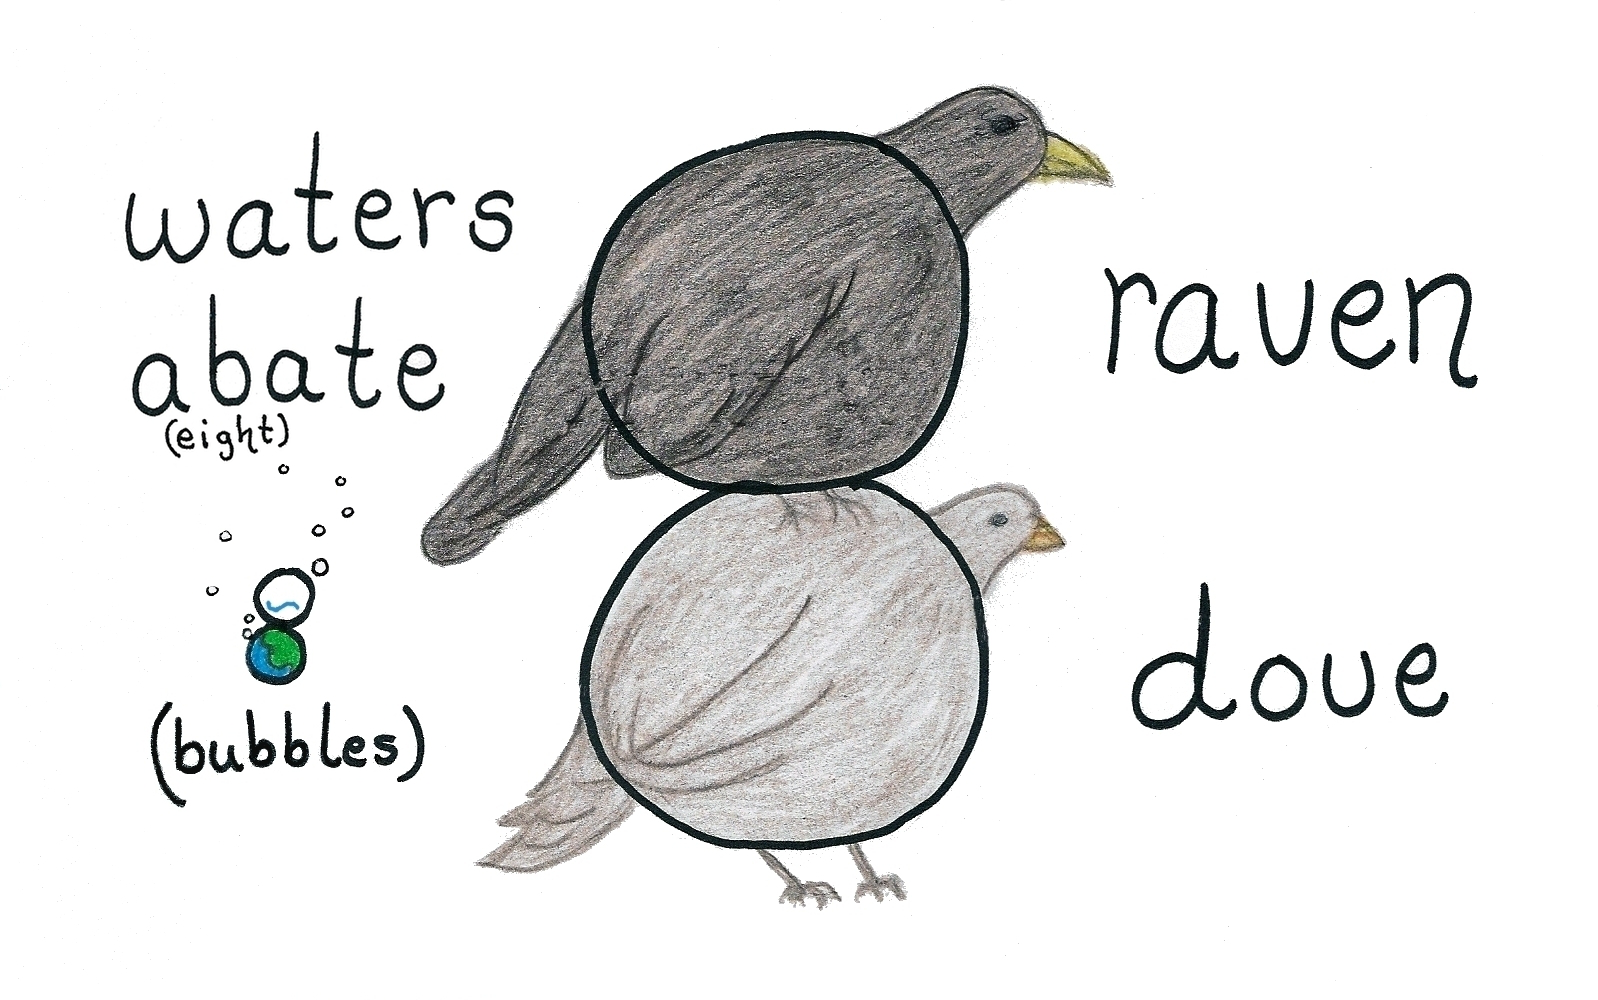 waters
abate
(eight)
(bubbles)
raven
dove